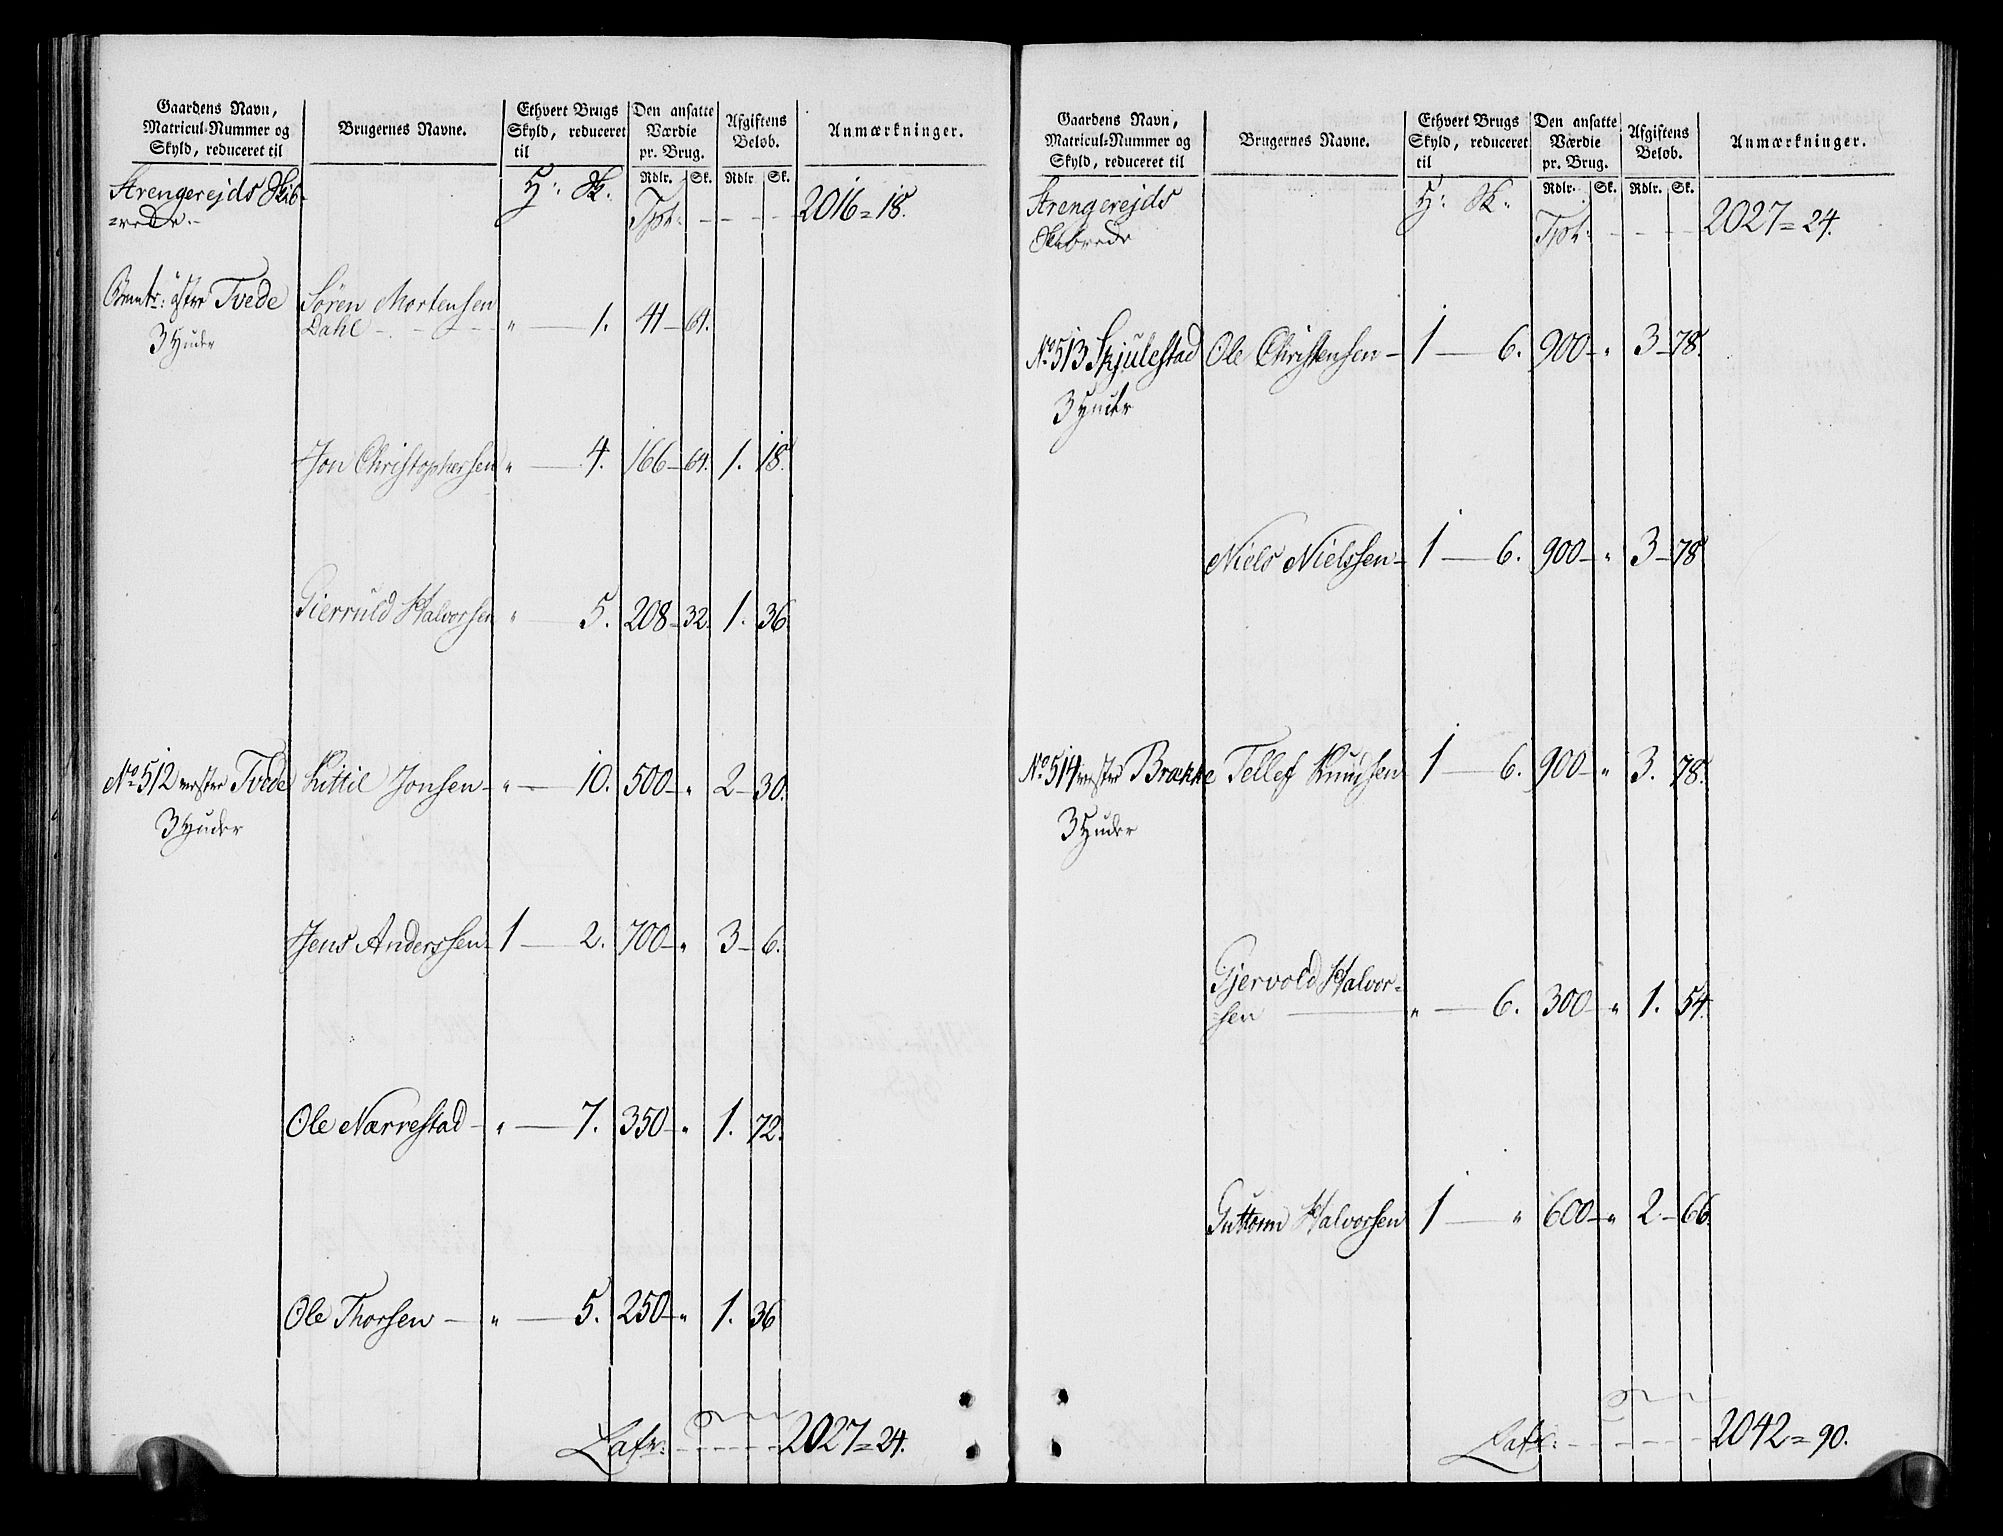 Gaardens Navn,
Matricul-Nummer og
Skyld, reduceret til
Brugernes Navne.
Ethvert Brugs
Skyld, reduceret
til
Den ansatte
Værdie
pr. Brug.
Afgiftens
Beløb.
Anmærkninger.
Rdlr. Sk. Rdlr Sk.
Strengerejds Skib-
=rede.- H: Sk. Tpt: - - - - 2016=18.
østre Tvede Søren Mortensen
3 Huder Dahl - - - " — 1. 41 — 64.
Jon Christophersen " — 4. 166 — 64. 1. 18.
Gierruld Halvorsen " — 5. 208 — 32. 1. 36.
No 512 vestre Tvede Kittil Jonsen - " — 10. 500 — " 2 — 30.
3 Huder
Jens Anderssen - 1 — 2. 700 — " 3 — 6.
Ole Narrestad - " — 7. 350 — " 1. 72.
Ole Thorsen — " — 5. 250 — " 1. 36
Latr: - - - - 2027=24.
Gaardens Navn,
Matricul-Nummer og
Skyld, reduceret til
Brugernes Navne.
Ethvert Brugs
Skyld, reduceret
til
Den ansatte
Værdie
pr. Brug.
Afgiftens
Beløb.
Anmærkninger.
Rdlr. Sk. Rdlr. Sk.
Strengerejds
Skibrede H: Sk: Tpt: - - - - 2027=24.
No 513 Skjulestad Ole Christensen - 1 — 6. 900 — " 3 — 78.
3 Huder
Niels Nielssen - 1 — 6. 900 — " 3 — 78
No 514 vestre Brække Tellef Knudsen 1 — 6. 900 — " 3. 78.
3 Huder
Gjervold Halvor-
sen — " — 6. 300 — " 1. 54.
Guttorm Halvorsen 1 — " 600 — " 2 — 66.
Latr: - - - - 2042=90.